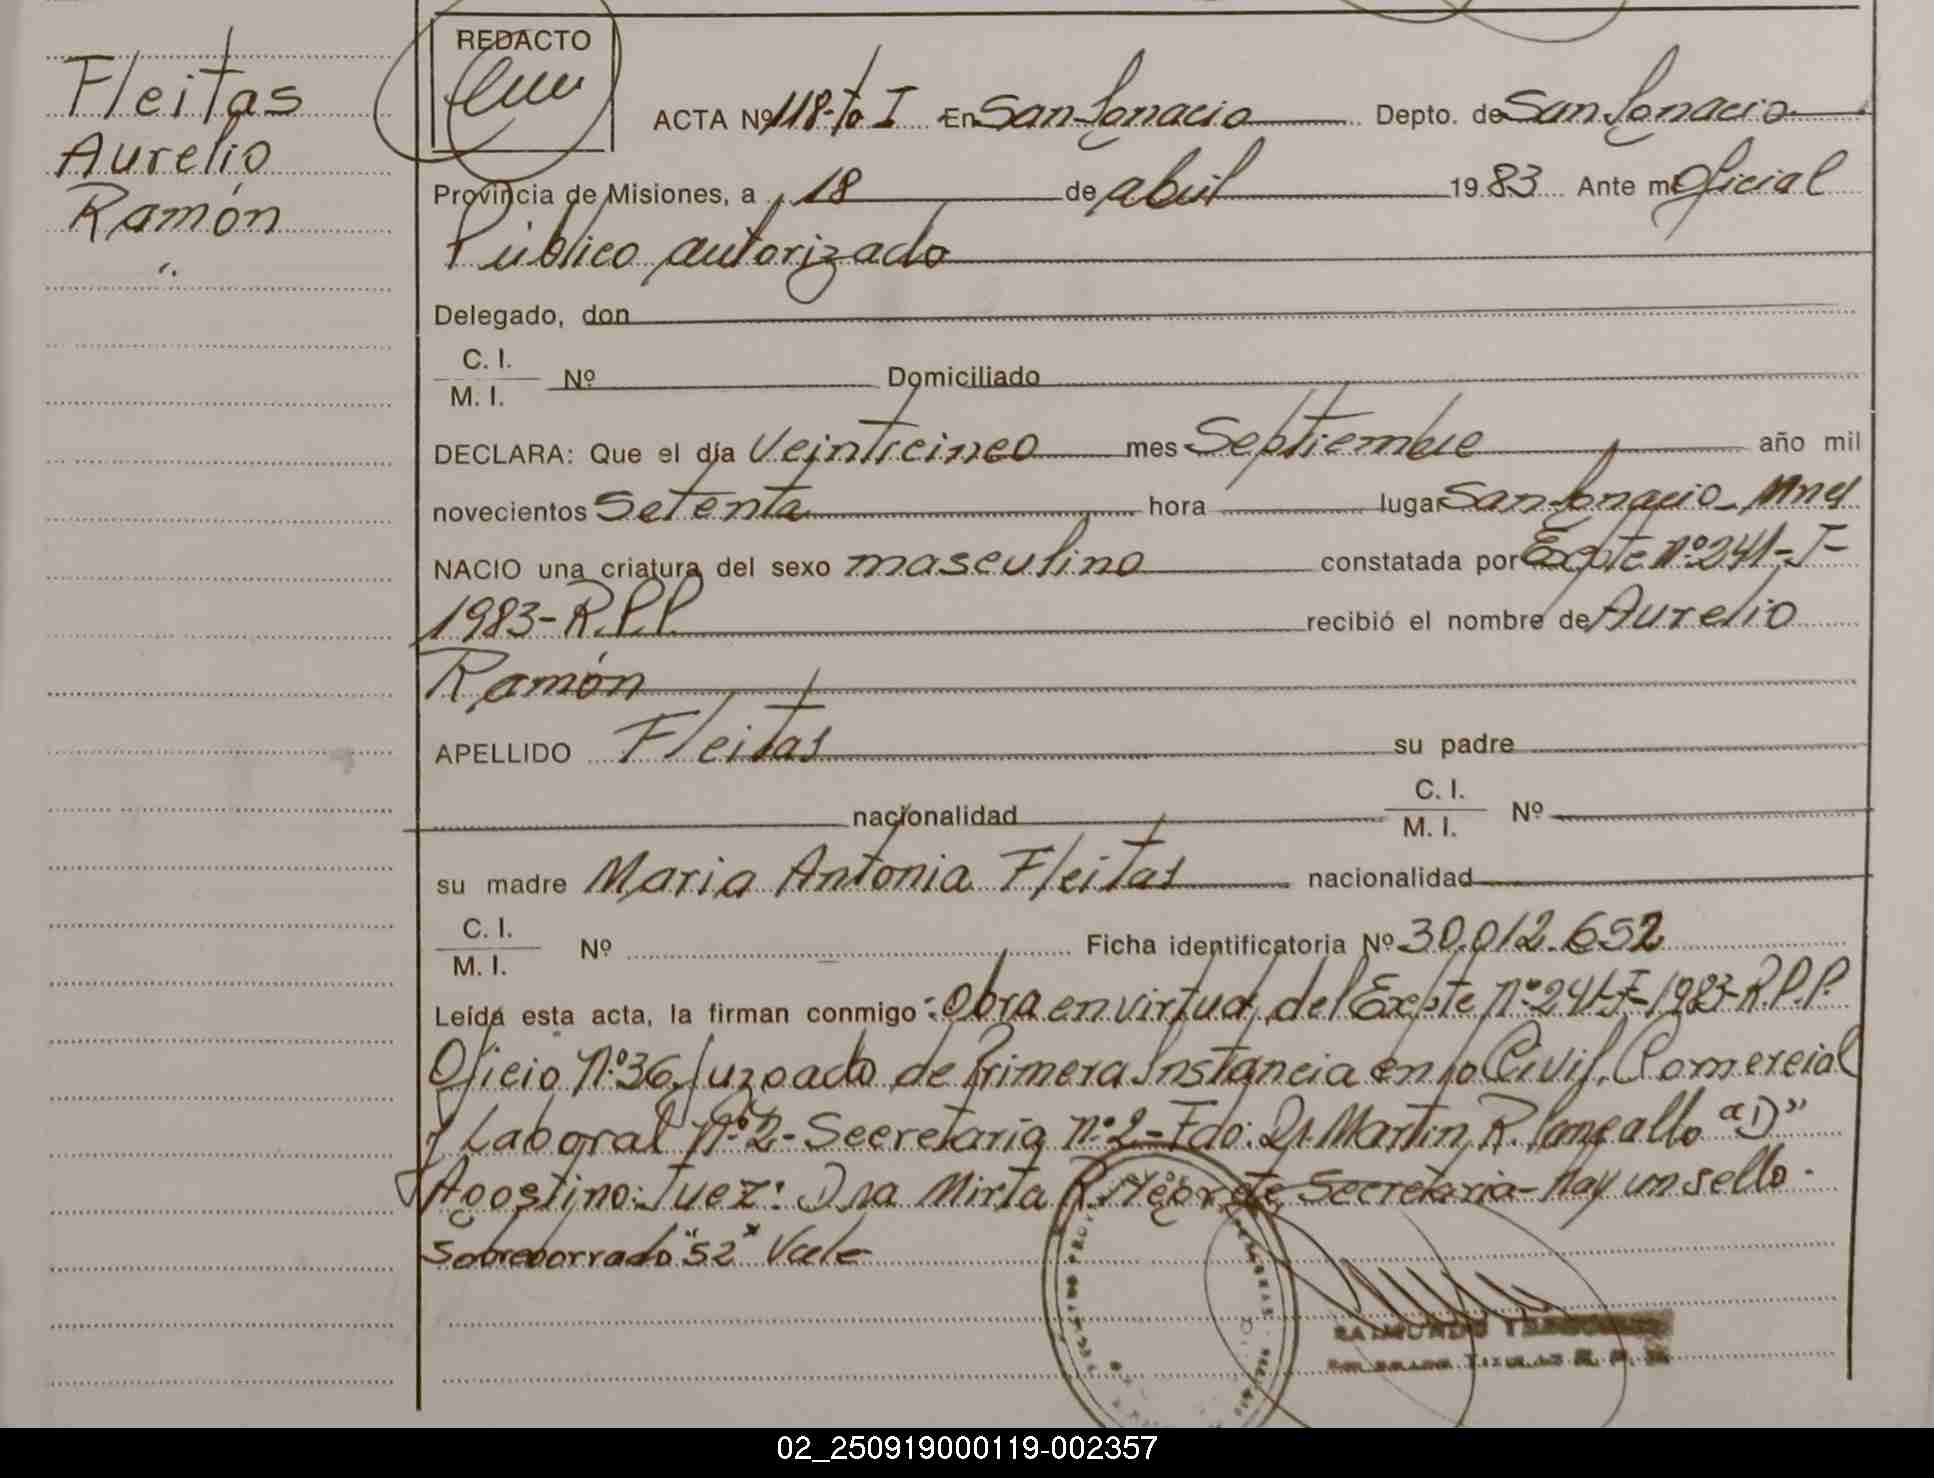 Fleitas
Aurelio
Ramón
REDACTO
ACTA Nº 118-to I En San Ignacio Depto. de San Ignacio
Provincia de Misiones, a 18 de abril 1983 Ante mi Oficial
Público autorizado
Delegado, don
C. I.
M. I. Nº Domiciliado
DECLARA: Que el día Veinticinco mes Septiembre año mil
novecientos Setenta hora lugar San Ignacio - Mnes
NACIO una criatura del sexo masculino constatada por Expte nº 241-F-
1983-R.P.P. recibió el nombre de Aurelio
Ramón
APELLIDO Fleitas su padre
nacionalidad C. I.
M. I. Nº
su madre Maria Antonia Fleitas nacionalidad
C. I.
M. I. Nº Ficha identificatoria Nº 30.012.652
Leída esta acta, la firman conmigo: Obra en virtud del Expte nº 241-F-1983-R.P.P.
Oficio Nº 36 Juzgado de Primera Instancia en lo Civil, Comercial
y Laboral nº 2 - Secretaria nº 2 - Fdo: Dr. Martin R. "D"
Agostino: Juez: Dra Mirta R. Negrete Secretaria - hay un sello.
Sobreborrado "52" Vale
RAIMUNDO
02_250919000119-002357